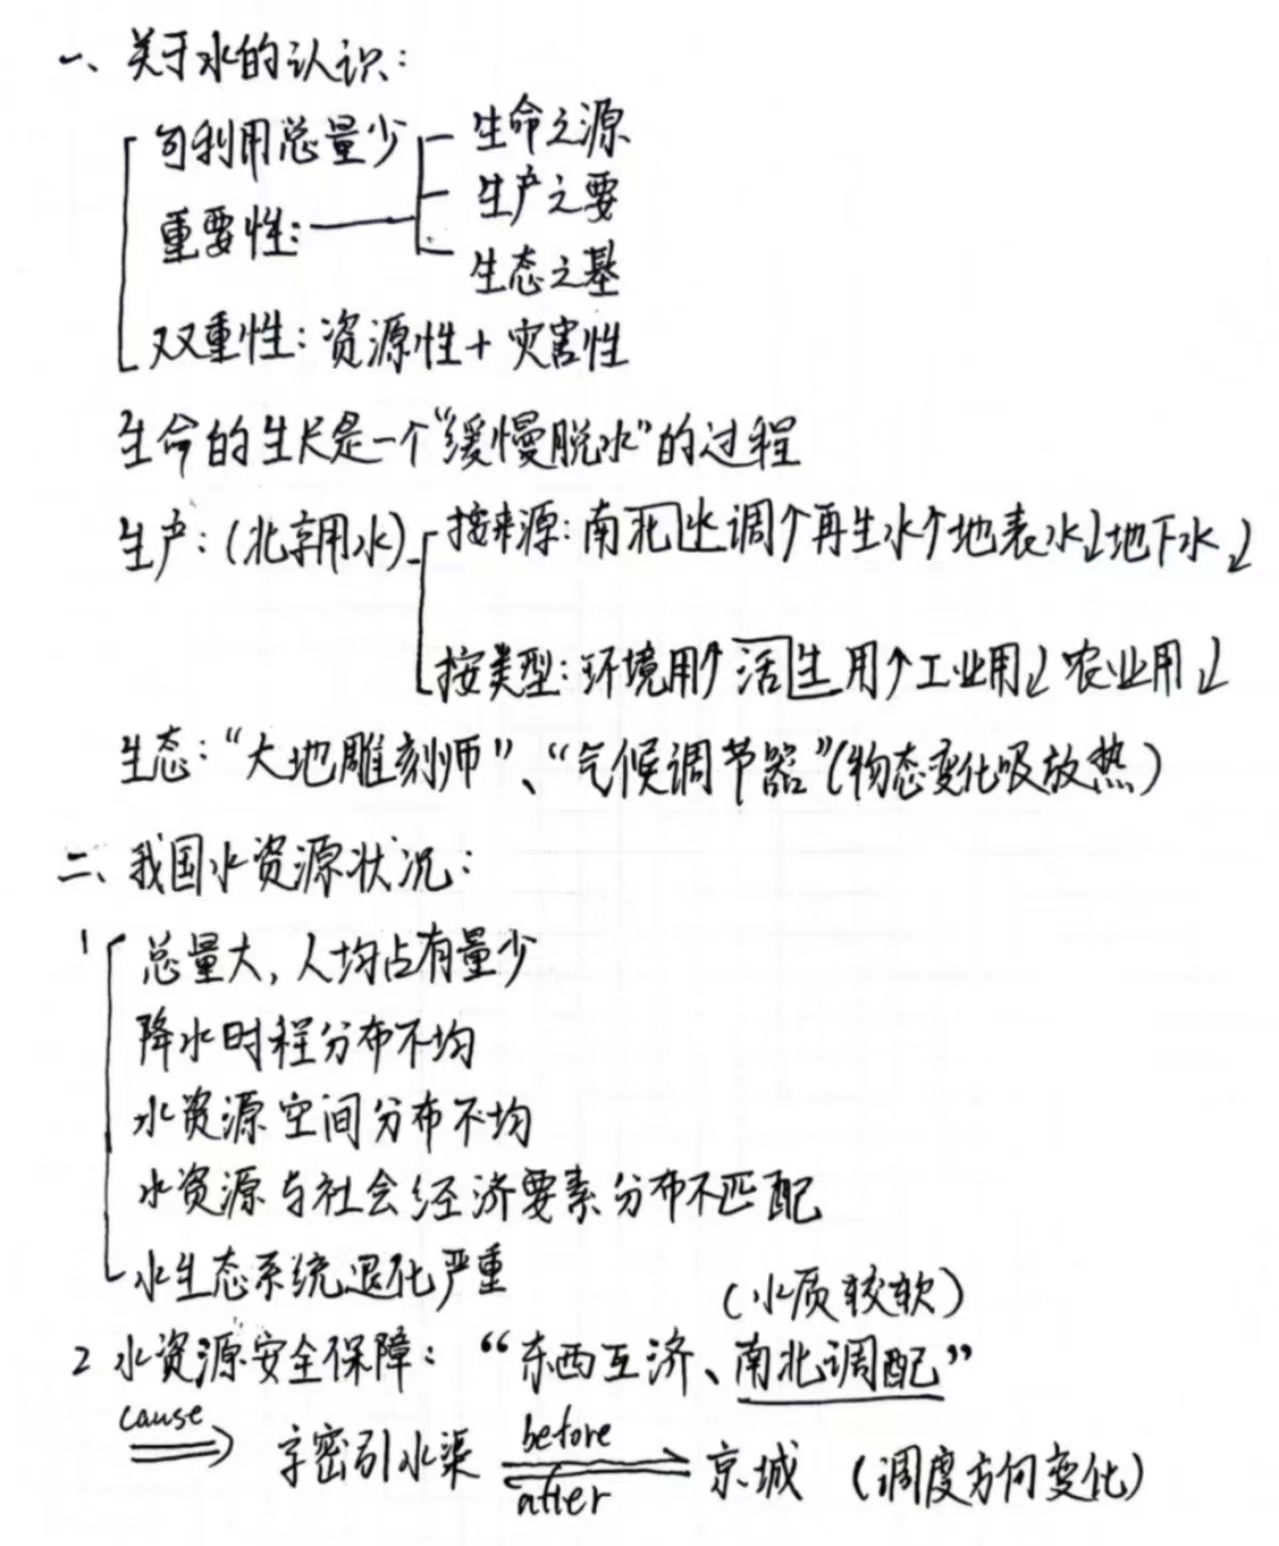 一、关于水的认识:
可利用总量少
重要性: 生命之源
生产之要
生态之基
双重性: 资源性 + 灾害性
生命的生长是一个"缓慢脱水"的过程
生产: (北京用水) 按来源: 南北水调↑ 再生水↑ 地表水↓ 地下水↓
按类型: 环境用↑ 活生用↑ 工业用↓ 农业用↓
生态: "大地雕刻师"、"气候调节器"(物态变化吸放热)
二、我国水资源状况:
1 总量大, 人均占有量少
降水时程分布不均
水资源空间分布不均
水资源与社会经济要素分布不匹配
水生态系统退化严重
(水质较软)
2 水资源安全保障: "东西互济、南北调配"
cause ⇒ 京密引水渠 before after 京城 (调度方向变化)